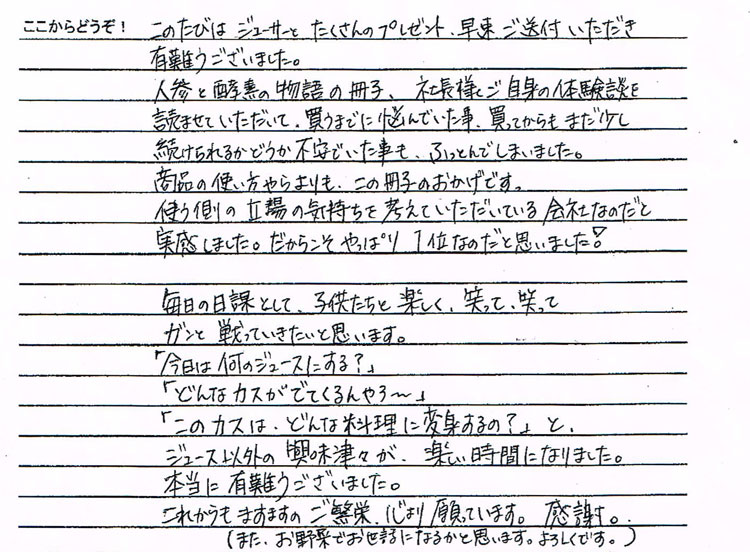 ここからどうぞ! このたびは ジューサーと たくさんの プレゼント、早速 ご送付 いただき
有難うございました。
人参と酵素の物語の冊子、社長様とご自身の体験談を
読ませていただいて、買うまでに悩んでいた事、買ってからも まだ少し
続けられるかどうか不安でいた事も、ふっとんでしまいました。
商品の使い方やらよりも、この冊子のおかげです。
使う側の立場の気持ちを考えていただいている会社なのだと
実感しました。だからこそ やっぱり 1位なのだと思いました!
毎日の日課として、子供たちと楽しく、笑って、笑って
ガンと戦っていきたいと思います。
「今日は何のジュースにする?」
「どんなカスがでてくるんやろ〜」
「このカスは、どんな料理に変身あるの?」と、
ジュース以外の興味津々が、楽しい時間になりました。
本当に有難うございました。
これからもますますのご繁栄、心より願っています。感謝。
(また、お野菜でお世話になるかと思います。よろしくです。)